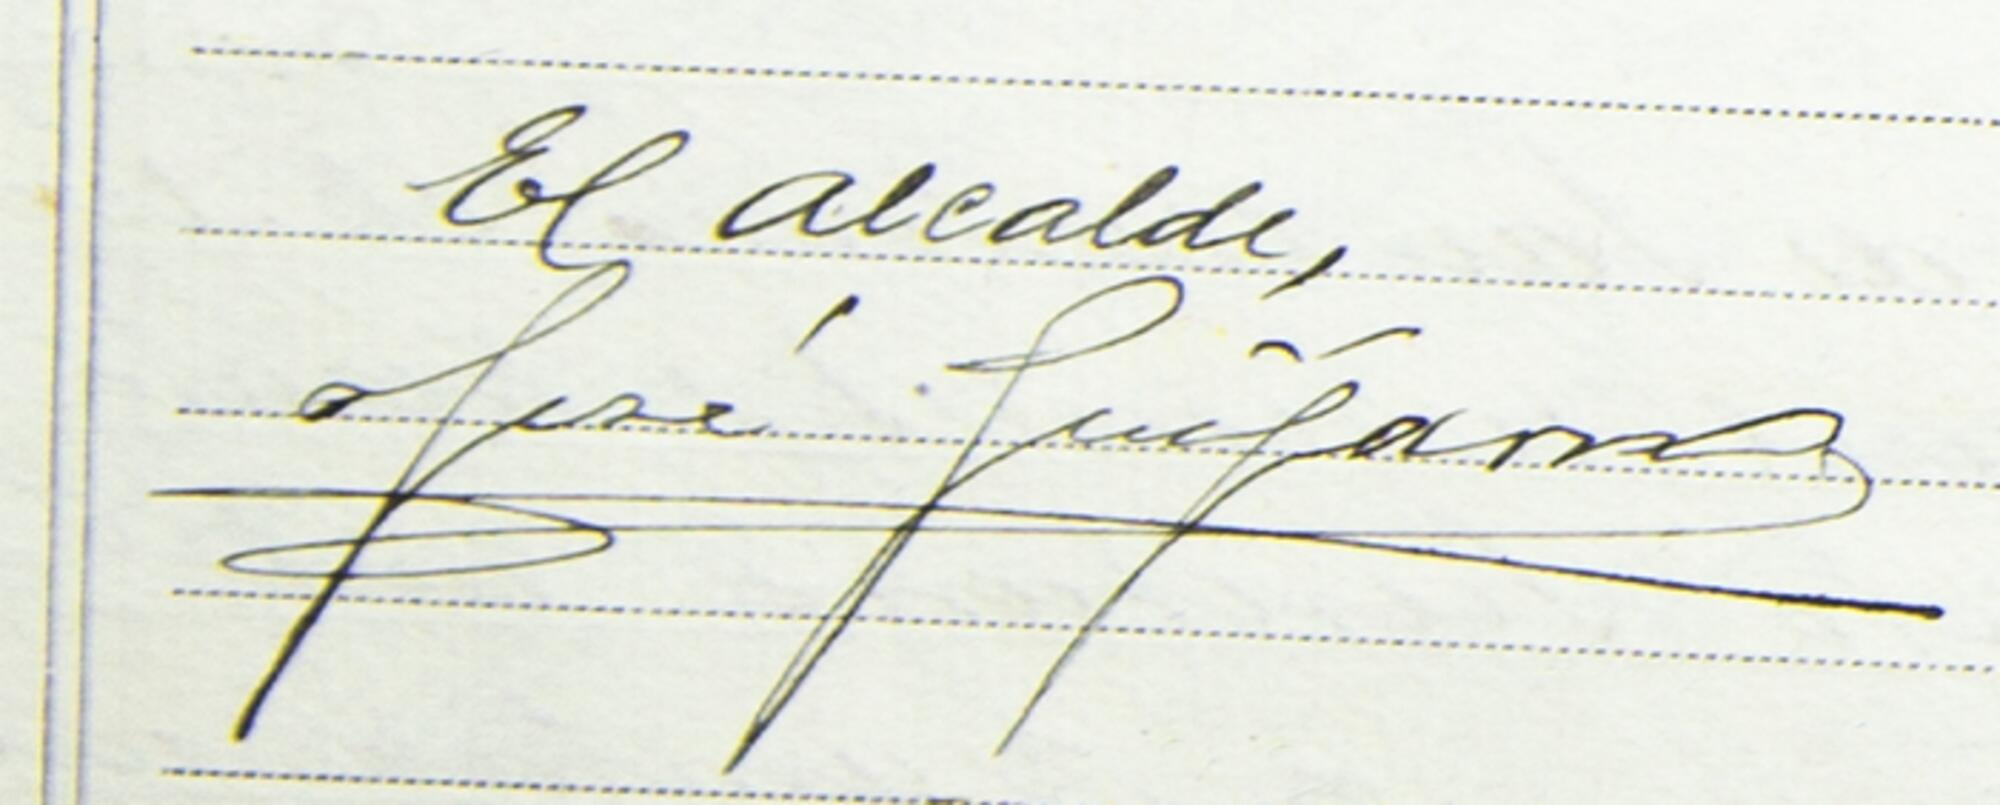 El alcalde,
José Guijarro